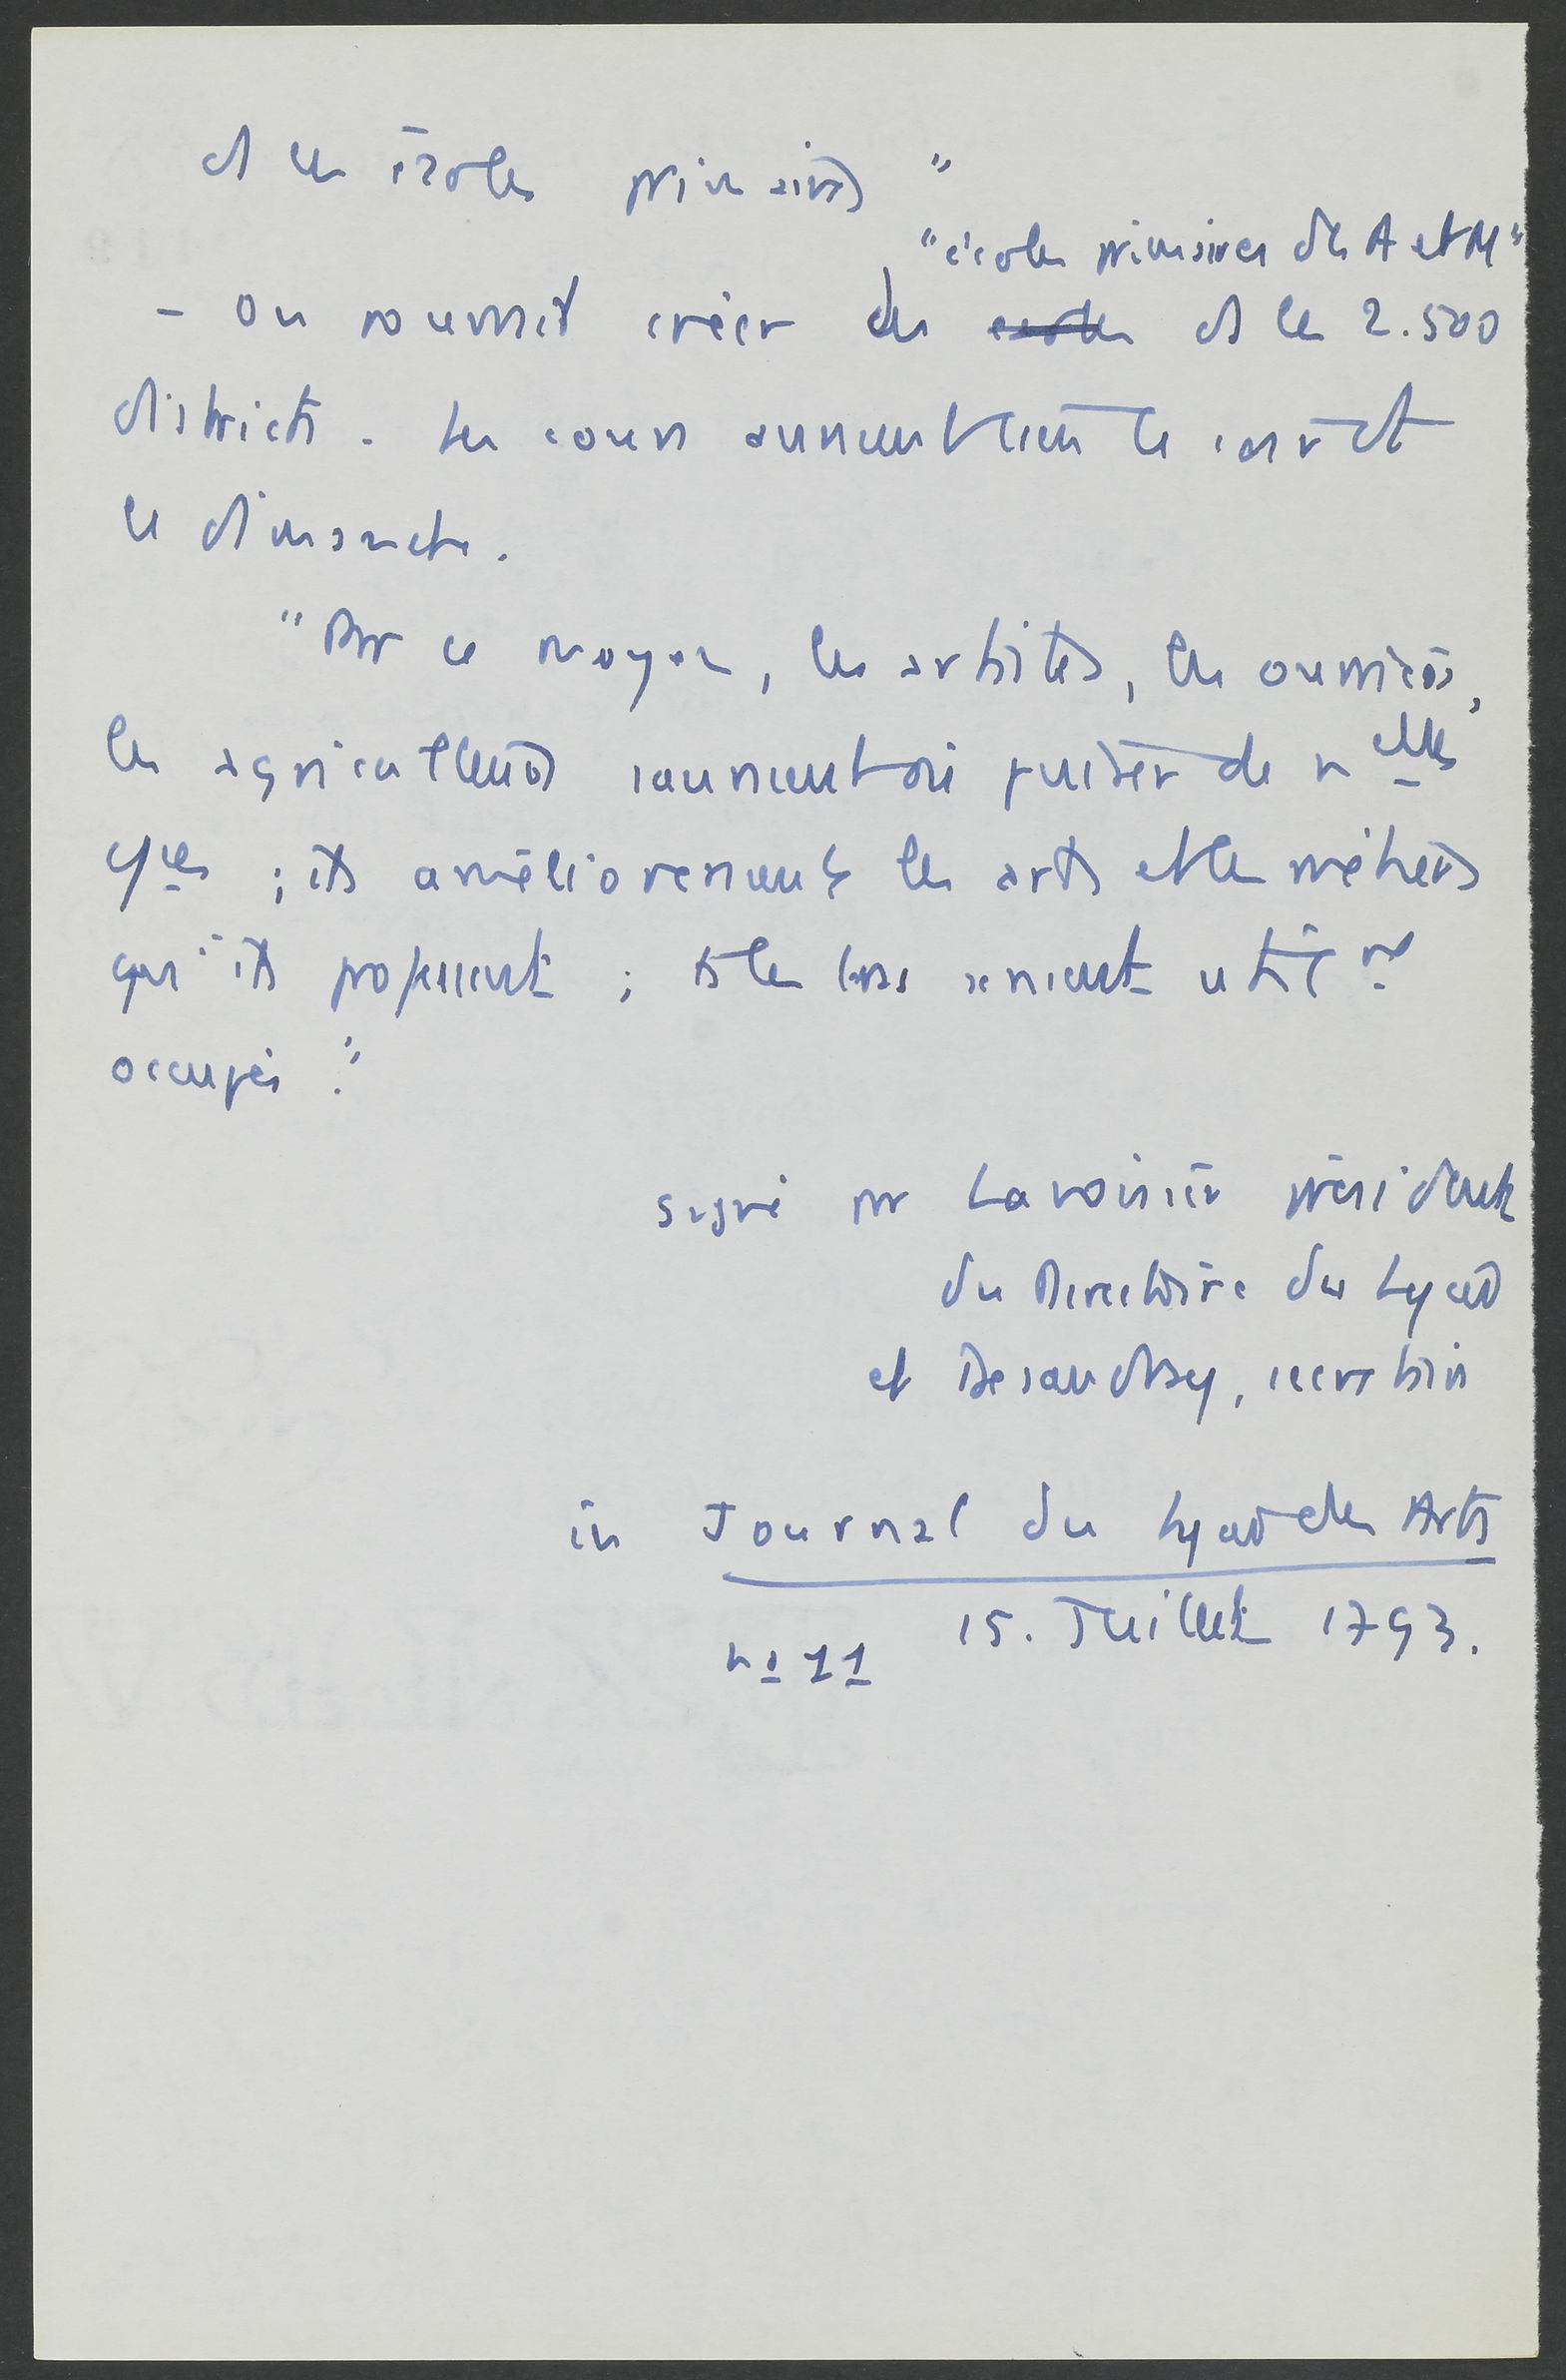 ds les écoles primaires "
"écoles primaires des A et M"
- on pourrait créer des écoles ds les 2.500
districts. Les cours auraient lieu le soir et
le dimanche.
"Par ce moyen, les artistes, les ouvriers,
les agriculteurs sauraient où puiser de nelles
; ils amélioreraient les arts et les métiers
qu'ils professent; ts les bras seraient utilemt
occupés."
signé par Lavoisier président
du Directoire du Lycée
et Desaudray, secrétaire
in Journal du Lycée des Arts
15. Juillet 1793.
no 11